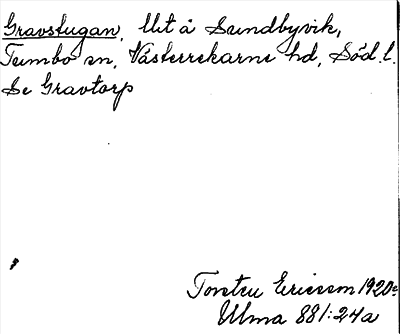 Gravstugan, Ut å Sundbyvik,
Tumbo sn, Västerrekarne hd, Söd. l.
Se Gravtorp
Torsten Ericsson 1920
Ulma 881:24a